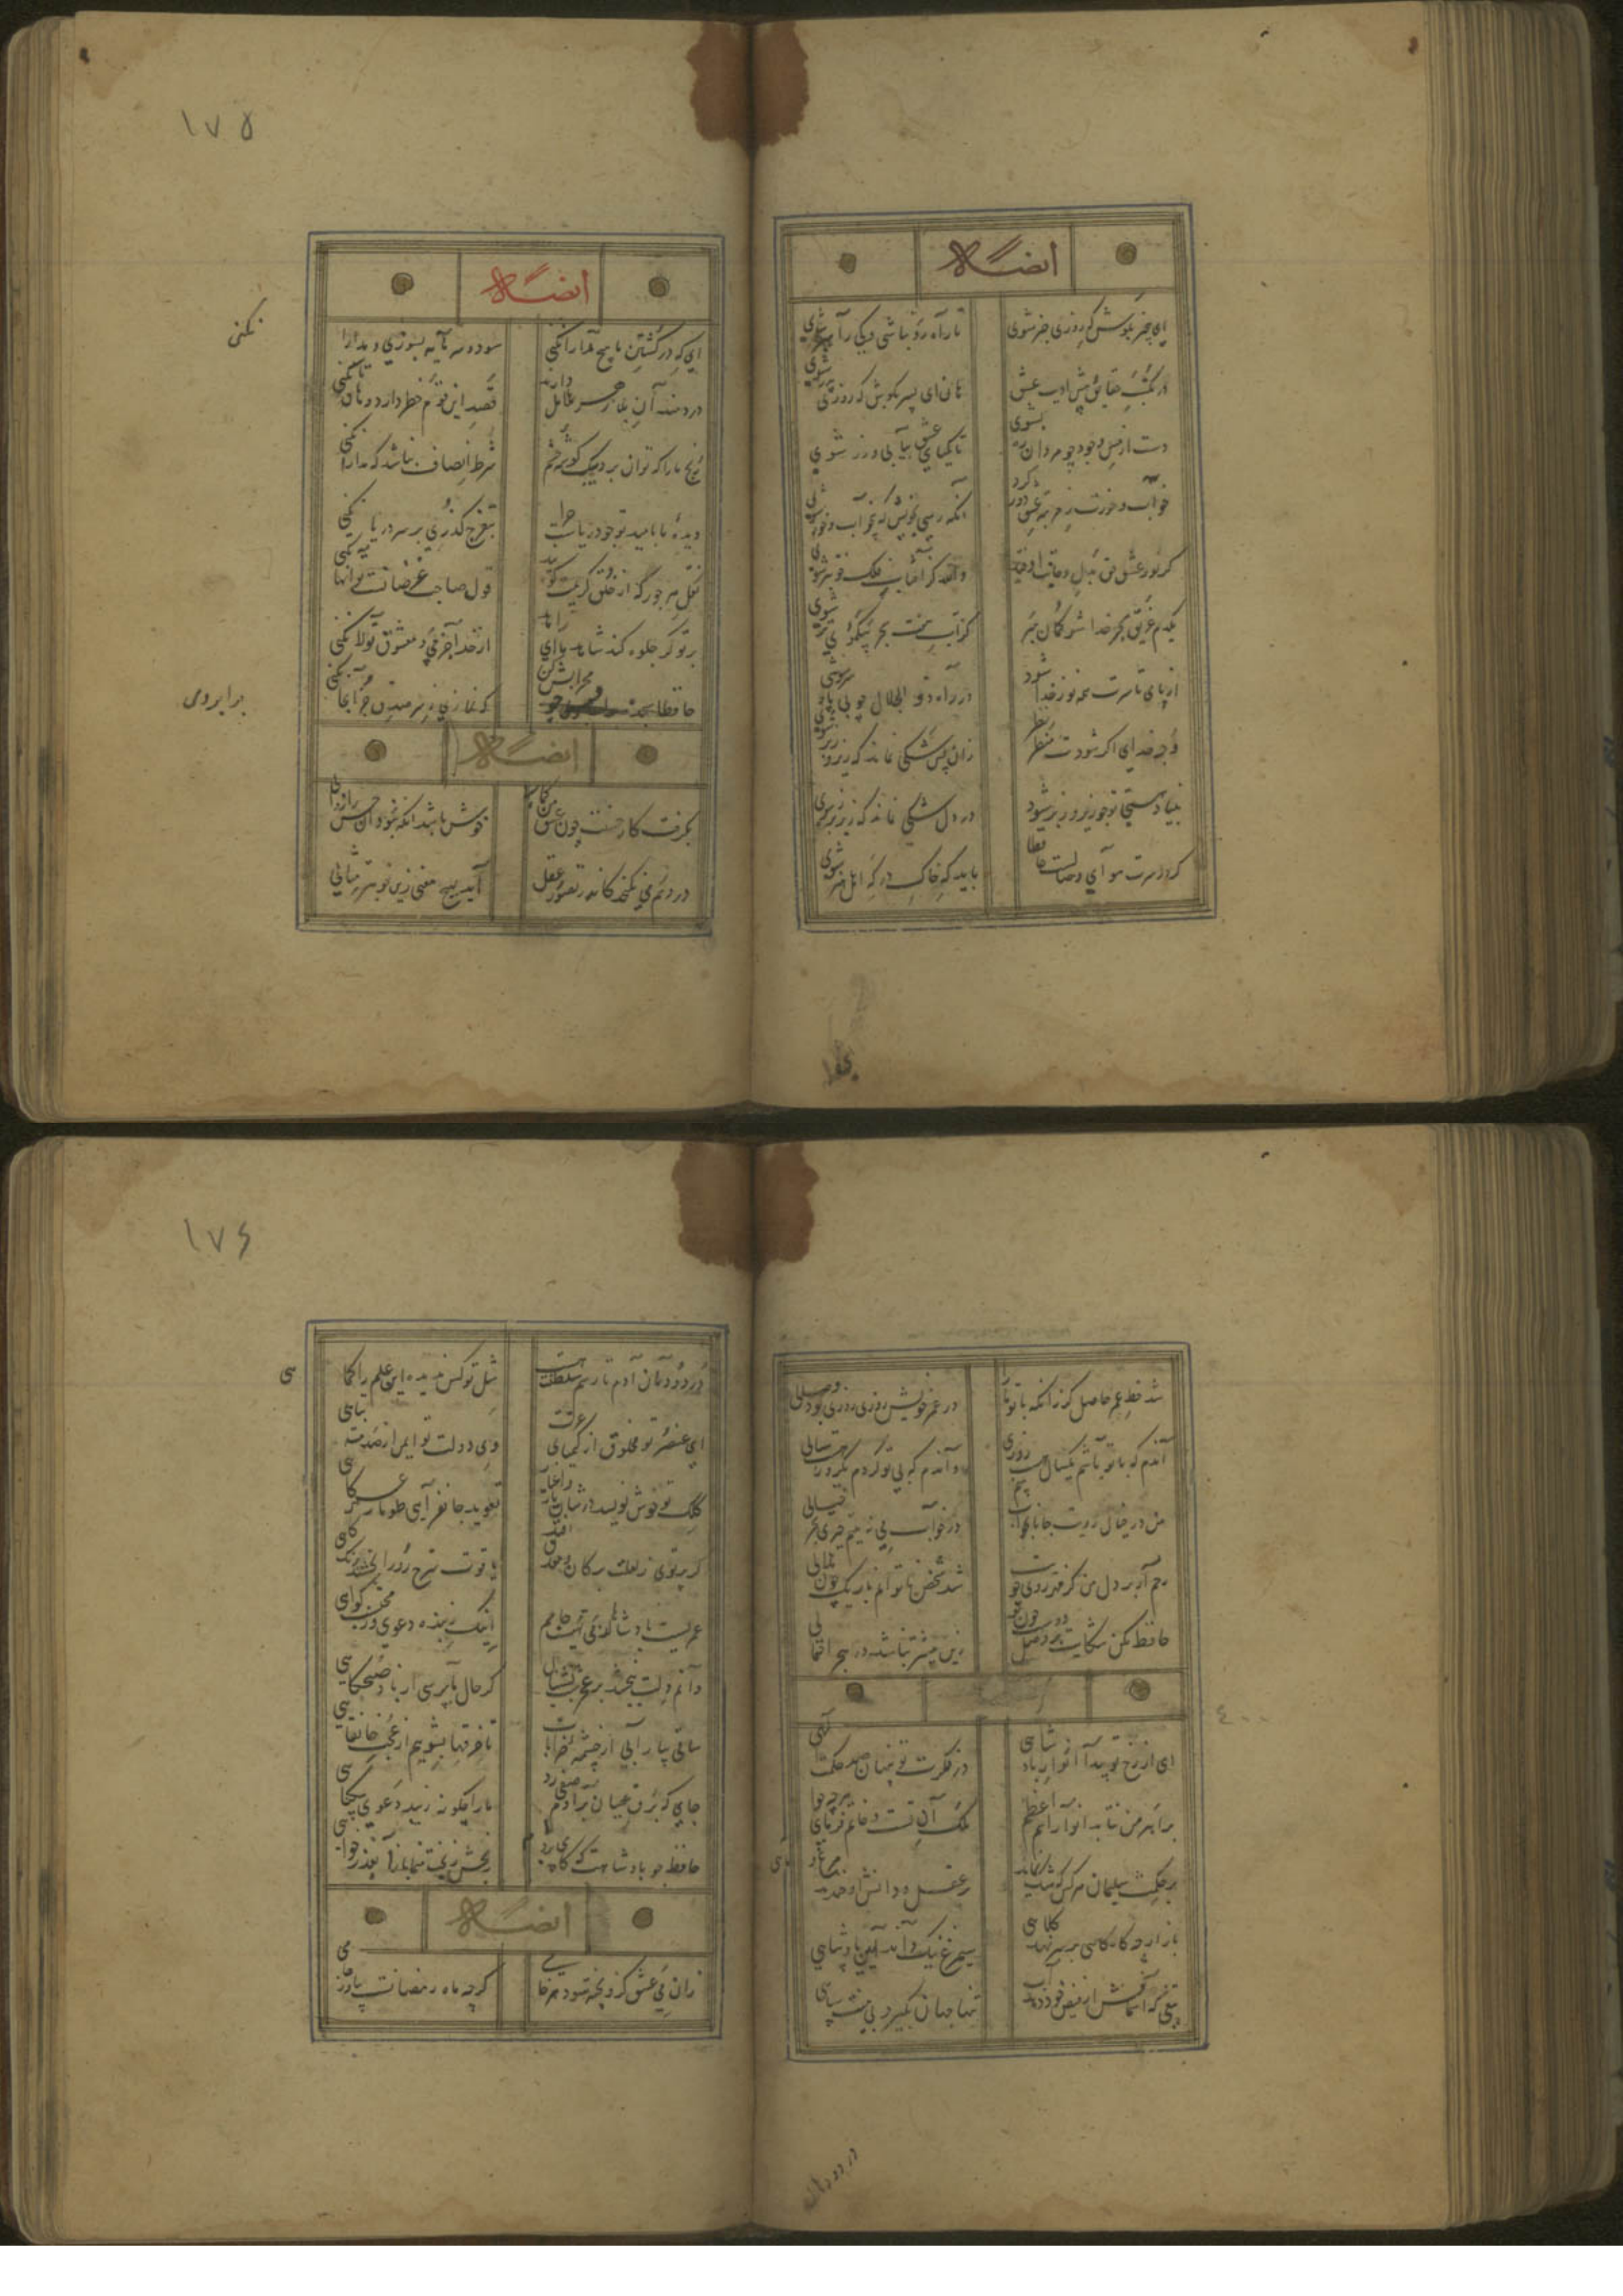 ایضاله
ای بیخبر بکوش که روزی خبر شوی
تا راه رو نباشی کی راهبر شوی
در مکتب حقایق پیش ادیب عشق
هان ای پسر بکوش که روزی پدر شوی
دست از مس وجود چو مردان ره بشوی
تا کیمیای عشق بیابی و زر شوی
خواب و خورت ز مرتبه عشق دور کرد
آنگه رسی بخویش که بیخواب و خور شوی
گر نور عشق حق بدل و جانت اوفتد
والله کز آفتاب فلک خوبتر شوی
یکدم غریق بحر خدا شو گمان مبر
کز آب هفت بحر بیک موی تر شوی
از پای تا سرت همه نور خدا شود
در راه ذو الجلال چو بی پا و سر شوی
وجه خدای اگر شودت منظر نظر
زان پس شکی نماند که
بنیاد هستی تو چو زیر و زبر شود
در دل شکی نماند که زیر و زبر شوی
گر در سرت هوای وصالست حافظا
باید که خاک درگه اهل هنر شوی
١٧٥
ایضاله
ای که در کشتن ما هیچ مدارا نکنی
سود و سرمایه بسوزی و مدارا نکنی
دردمندان بلا زهر هلاهل دارند
قصد این قوم خطر دارد و هان تا نکنی
رنج ما را که توان برد بیک گوشه چشم
شرط انصاف نباشد که مدارا نکنی
دیده ما بامید تو چو دریاست چرا
بتفرج گذری بر سر دریا نکنی
نقل هر جور که از خلق کریمت کردند
قول صاحب غرضانست تو آنها نکنی
بر تو گر جلوه کند شاهد ما ای زاهد
از خدا جز می و معشوق تولا نکنی
حافظا سجده محرابش کن
که نمازی ز سر صدق جز آنجا نکنی
نکنی
برابروی
ایضاله
بگرفت کار حسنت چون عشق من کمالی
خوش باش زانکه نبود آن حسن را زوالی
در وهم می نگنجد کاندر تصور عقل
آید بهیچ معنی زین خوبتر مثالی
شد حظ عمر حاصل گر زانکه با تو ما را
در عمر خویش روزی روزی بود وصالی
آندم که با تو باشم یکسال هست روزی
و آندم که بی تو گردم یکروز هست سالی
من در خیال رویت جانا بخواب بینم
در خواب می نبیند چیزی بجز خیالی
رحم آر بر دل من کز مهر روی خوبت
شد شخص ناتوانم باریک چون هلالی
حافظ مکن شکایت گر وصل دوست خواهی
زین بیشتر نباشد در هجر احتمالی
ای از رخ تو پیدا انوار پادشاهی
در فکرت تو پنهان صد حکمت الهی
بر اهرمن نتابد انوار اسم اعظم
ملک آن تست و خاتم فرمای هرچه خواهی
بر حکمت سلیمان هرکس که شک نماید
بر عقل و دانش او خندند مرغ و ماهی
باز ارچه گاه گاهی بر سر نهد کلاهی
سیمرغ نیک داند آیین پادشاهی
تیغی که آسمانش از فیض خود دهد آب
تنها جهان بگیرد بی منت سپاهی
در دودمان
١٧٦
در دودمان آدم تا رسم سلطنت هست
مثل تو کس ندیده این علم را کماهی
ای عنصر تو مخلوق از کیمیای عزت
وی دولت تو ایمن از صدمت تباهی
کلک تو خوش نویسد در شان یار و اغیار
تعویذ جانفزایی طومار عمر کاهی
گر پرتوی ز تیغت بر کان و معدن افتد
یاقوت سرخ رو را بخشند رنگ کاهی
عمریست پادشاها کز می تهیست جامم
اینک ز بنده دعوی وز محتسب گواهی
دانم دلت ببخشد بر عجز شب نشینان
گر حال ما بپرسی از باد صبحگاهی
ساقی بیار آبی از چشمه خرابات
تا خرقها بشوییم از عجب خانقاهی
جایی که برق عصیان بر آدم صفی زد
ما را چگونه زیبد دعوی بیگناهی
حافظ چو پادشاهت گه گاه می برد نام
رنجش ز بخت منما باز آ بعذر خواهی
ایضاله
زان می عشق کزو پخته شود هر خامی
گرچه ماه رمضانست بیاور جامی